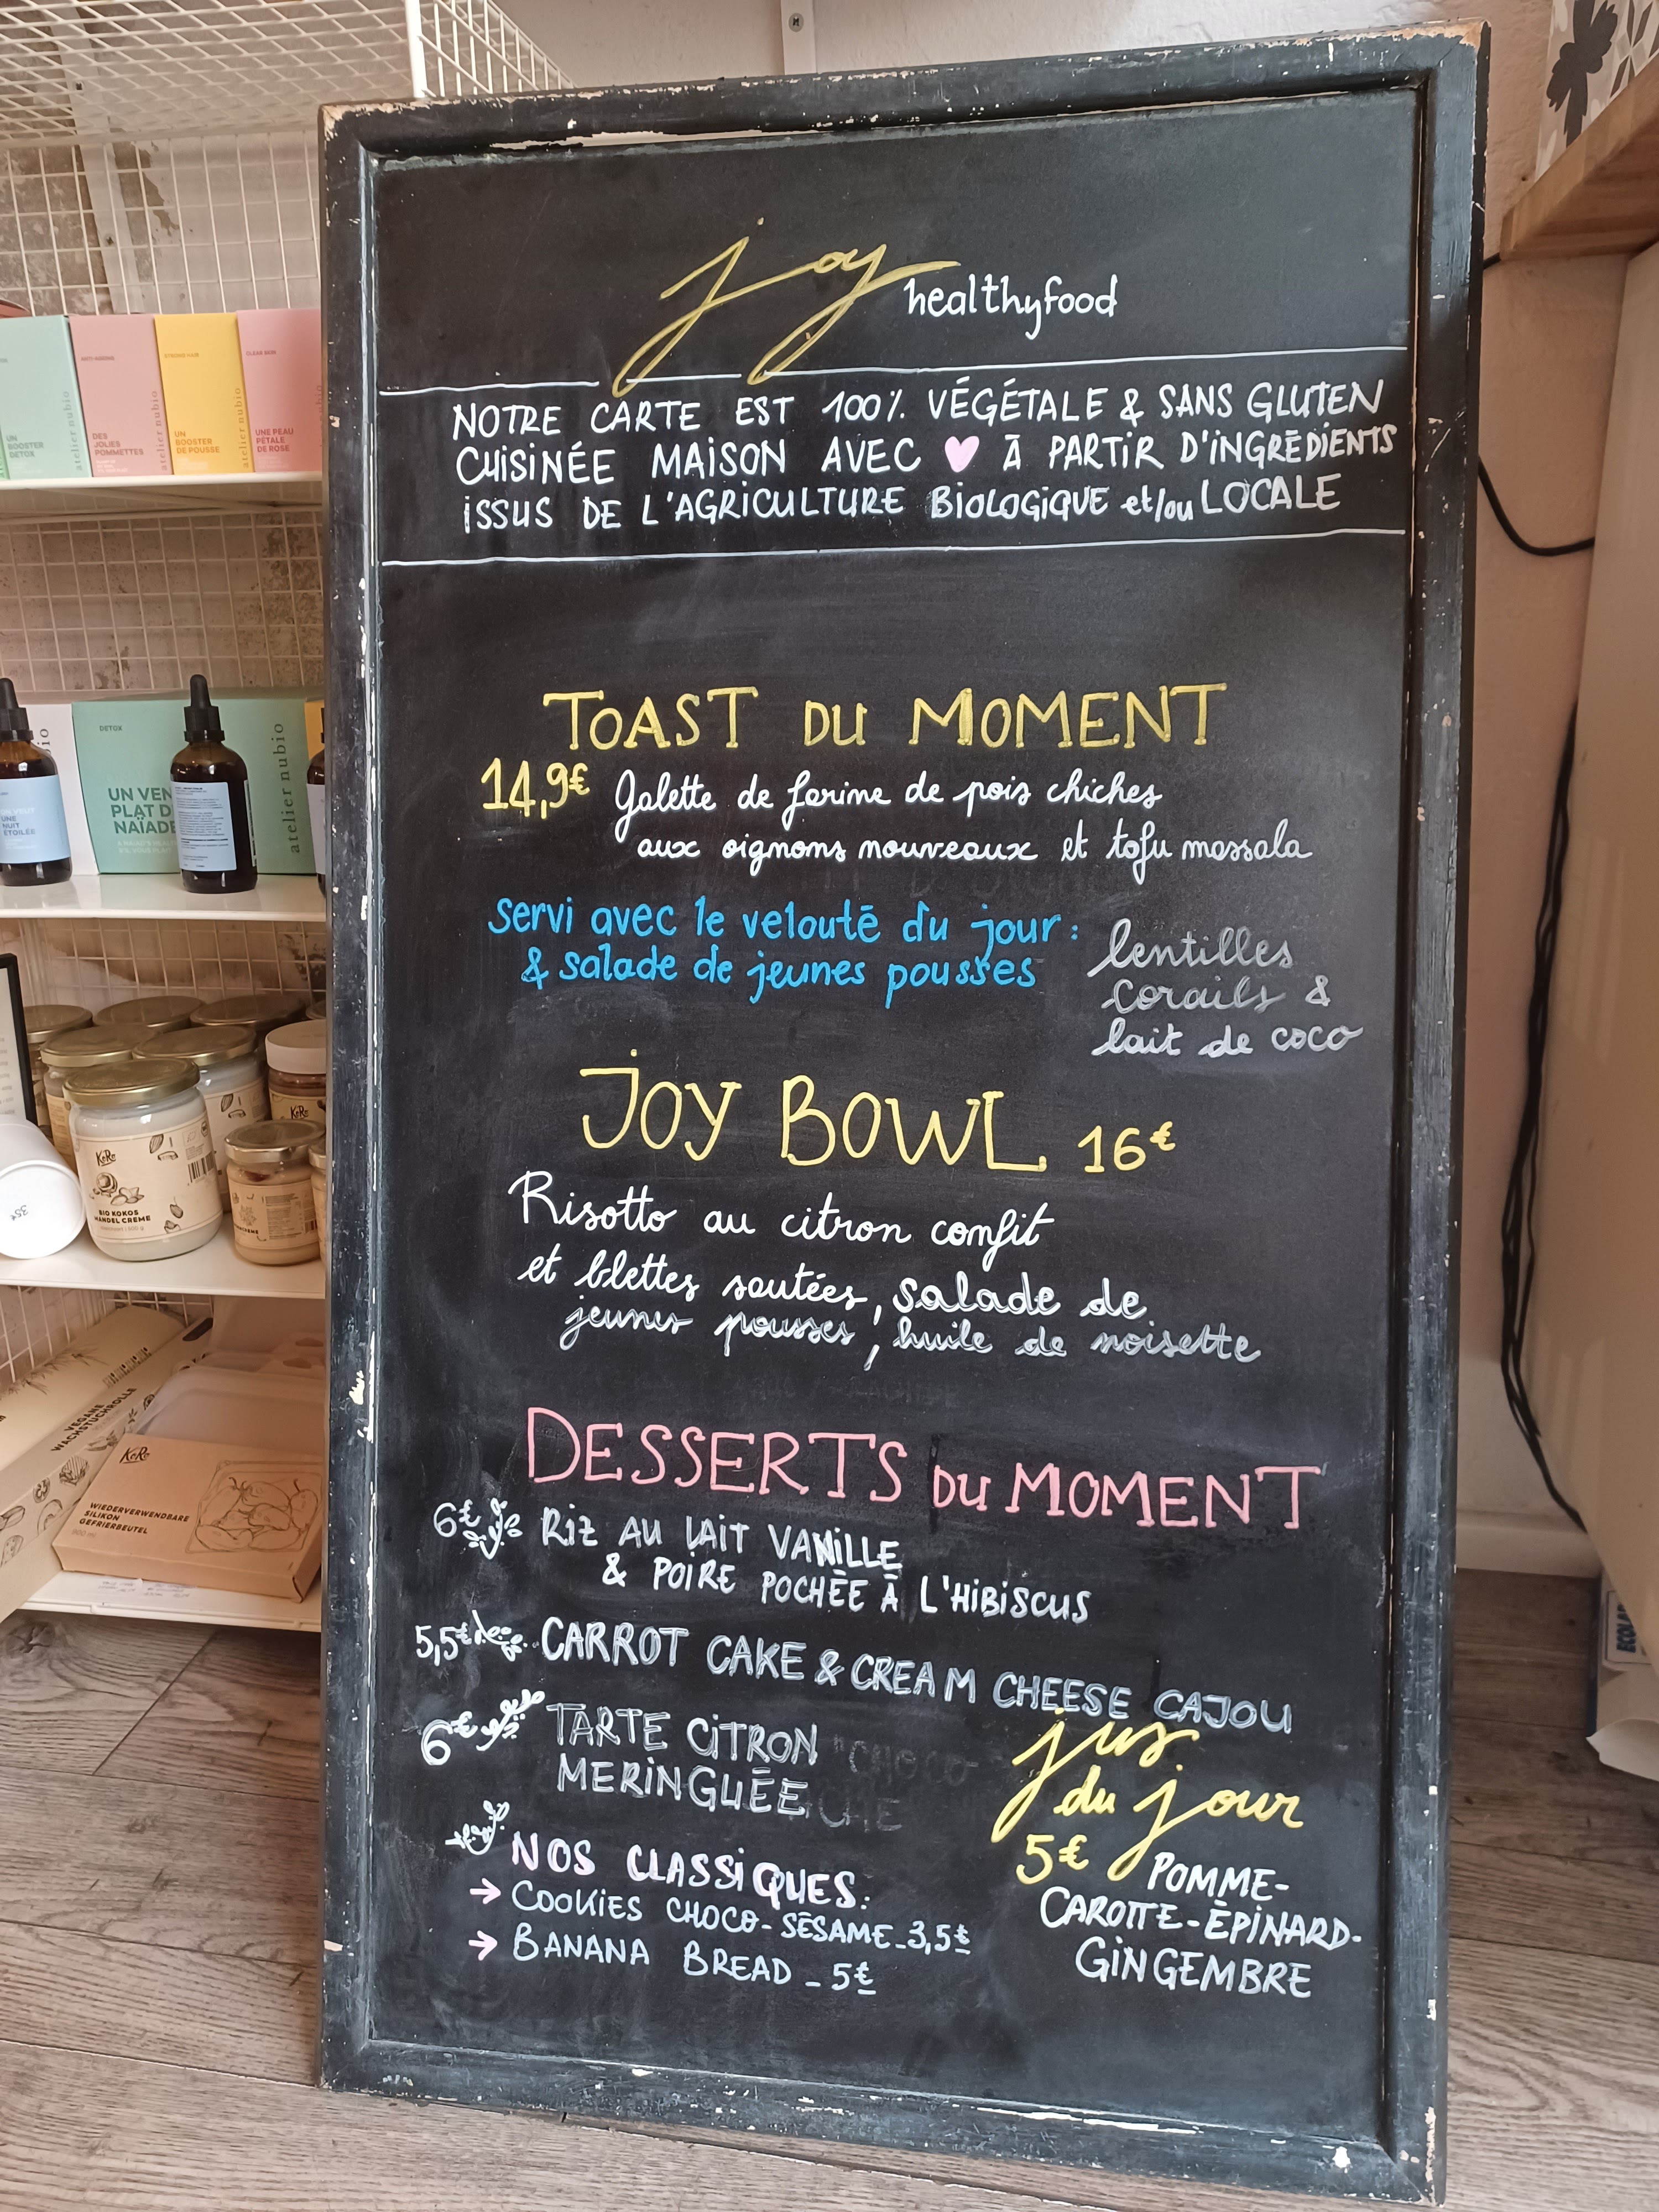 joy healthyfood
NOTRE CARTE EST 100% VÉGÉTALE & SANS GLUTEN
CUISINÉE MAISON AVEC ♥ À PARTIR D'INGRÉDIENTS
ISSUS DE L'AGRICULTURE BIOLOGIQUE et/ou LOCALE
TOAST DU MOMENT
14,9€ Galette de farine de pois chiches
aux oignons nouveaux et tofu massala
servi avec le velouté du jour :
& salade de jeunes pousses
lentilles
corails &
lait de coco
JOY BOWL 16€
Risotto au citron confit
et blettes sautées, salade de
jeunes pousses, huile de noisette
DESSERTS DU MOMENT
6€ RIZ AU LAIT VANILLE
& POIRE POCHÉE À L'HIBISCUS
5,5€ CARROT CAKE & CREAM CHEESE CAJOU
6€ TARTE CITRON
MERINGUÉE
NOS CLASSIQUES:
→ COOKIES CHOCO-SÉSAME_3,5€
→ BANANA BREAD _ 5€
jus
du jour
5€ POMME-
CAROTTE-ÉPINARD-
GINGEMBRE
ANTI-AGEING
STRONG HAIR
CLEAR SKIN
UN
BOOSTER
DETOX
atelier nubio
DES
JOLIES
POMMETTES
atelier nubio
UN
BOOSTER
DE POUSSE
atelier nubio
UNE PEAU
PÉTALE
DE ROSE
DETOX
UN VEN
PLAT D
NAÏADE
atelier nubio
UNE
NUIT
ÉTOILÉE
KoRo
BIO KOKOS
MANDEL CREME
KoRo
35€
VEGANE
WACHSTUCHROLLE
KoRo
WIEDERVERWENDBARE
SILIKON
GEFRIERBEUTEL